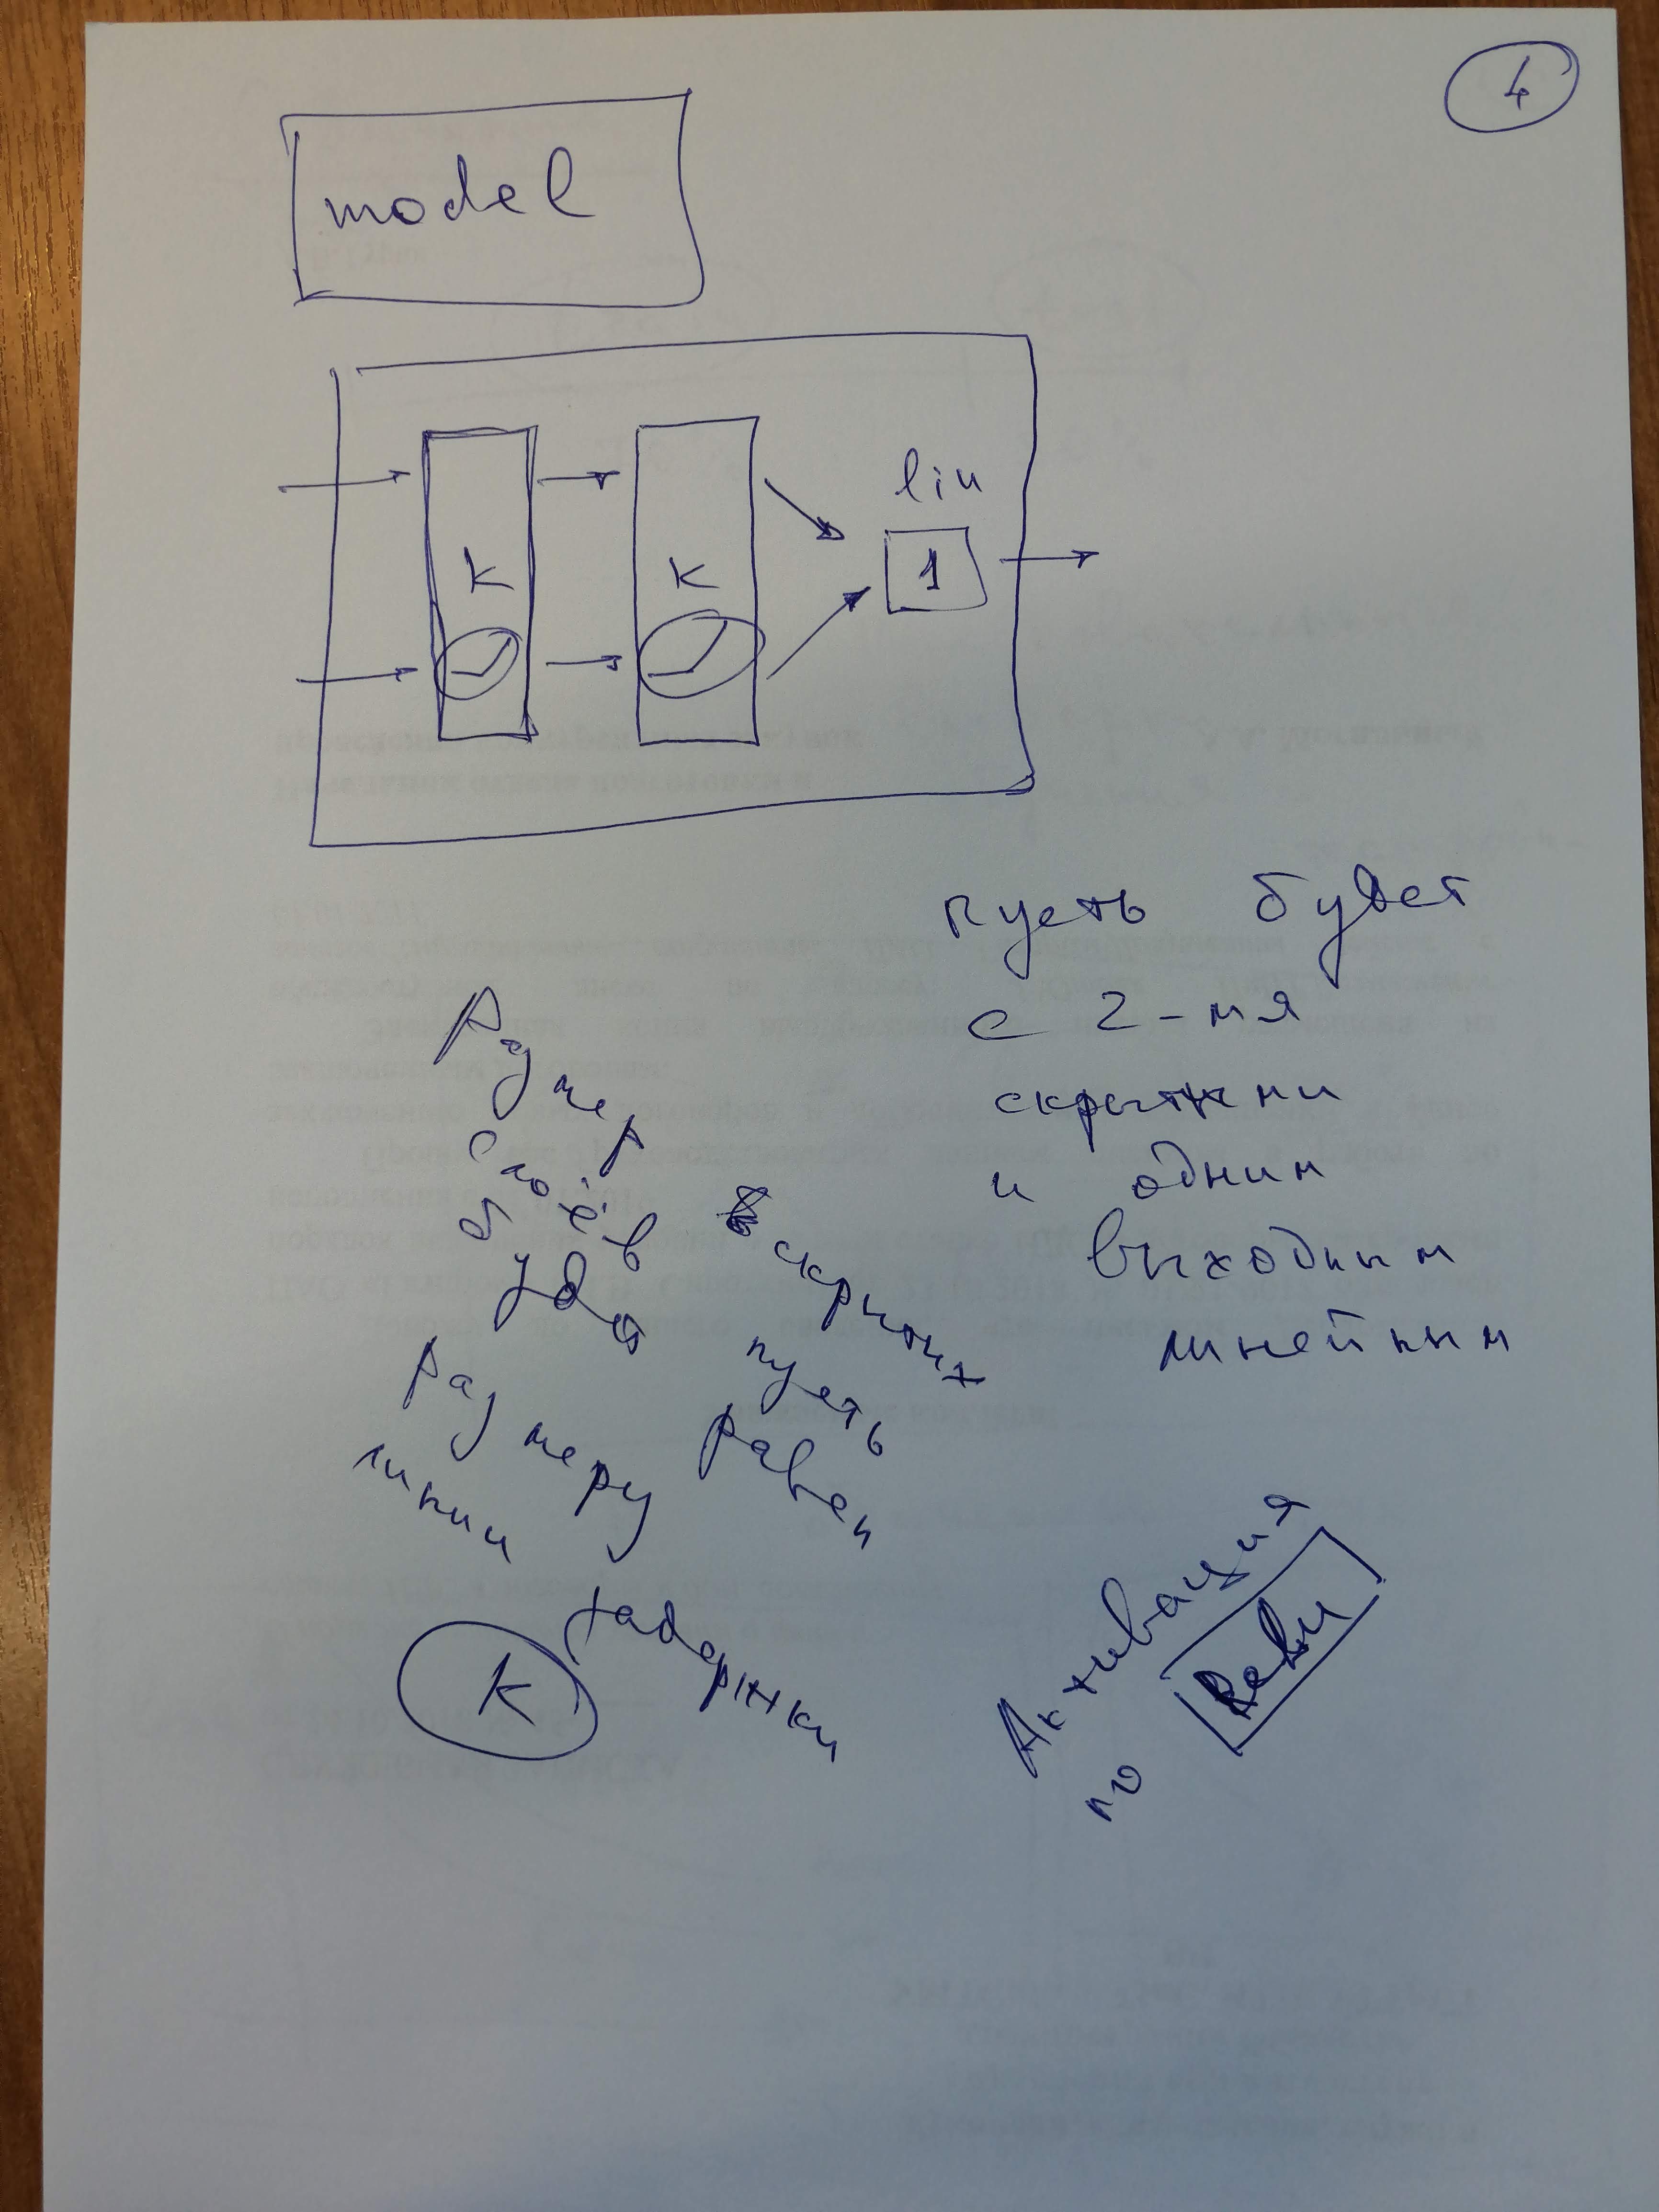 4
model
lin
K
K
1
пусть будет
с 2-мя
скрытыми
и одним
выходным
линейным
Размер
слоёв скрытых
будет пусть
размеру равен
линии задержки
K
Активация
по